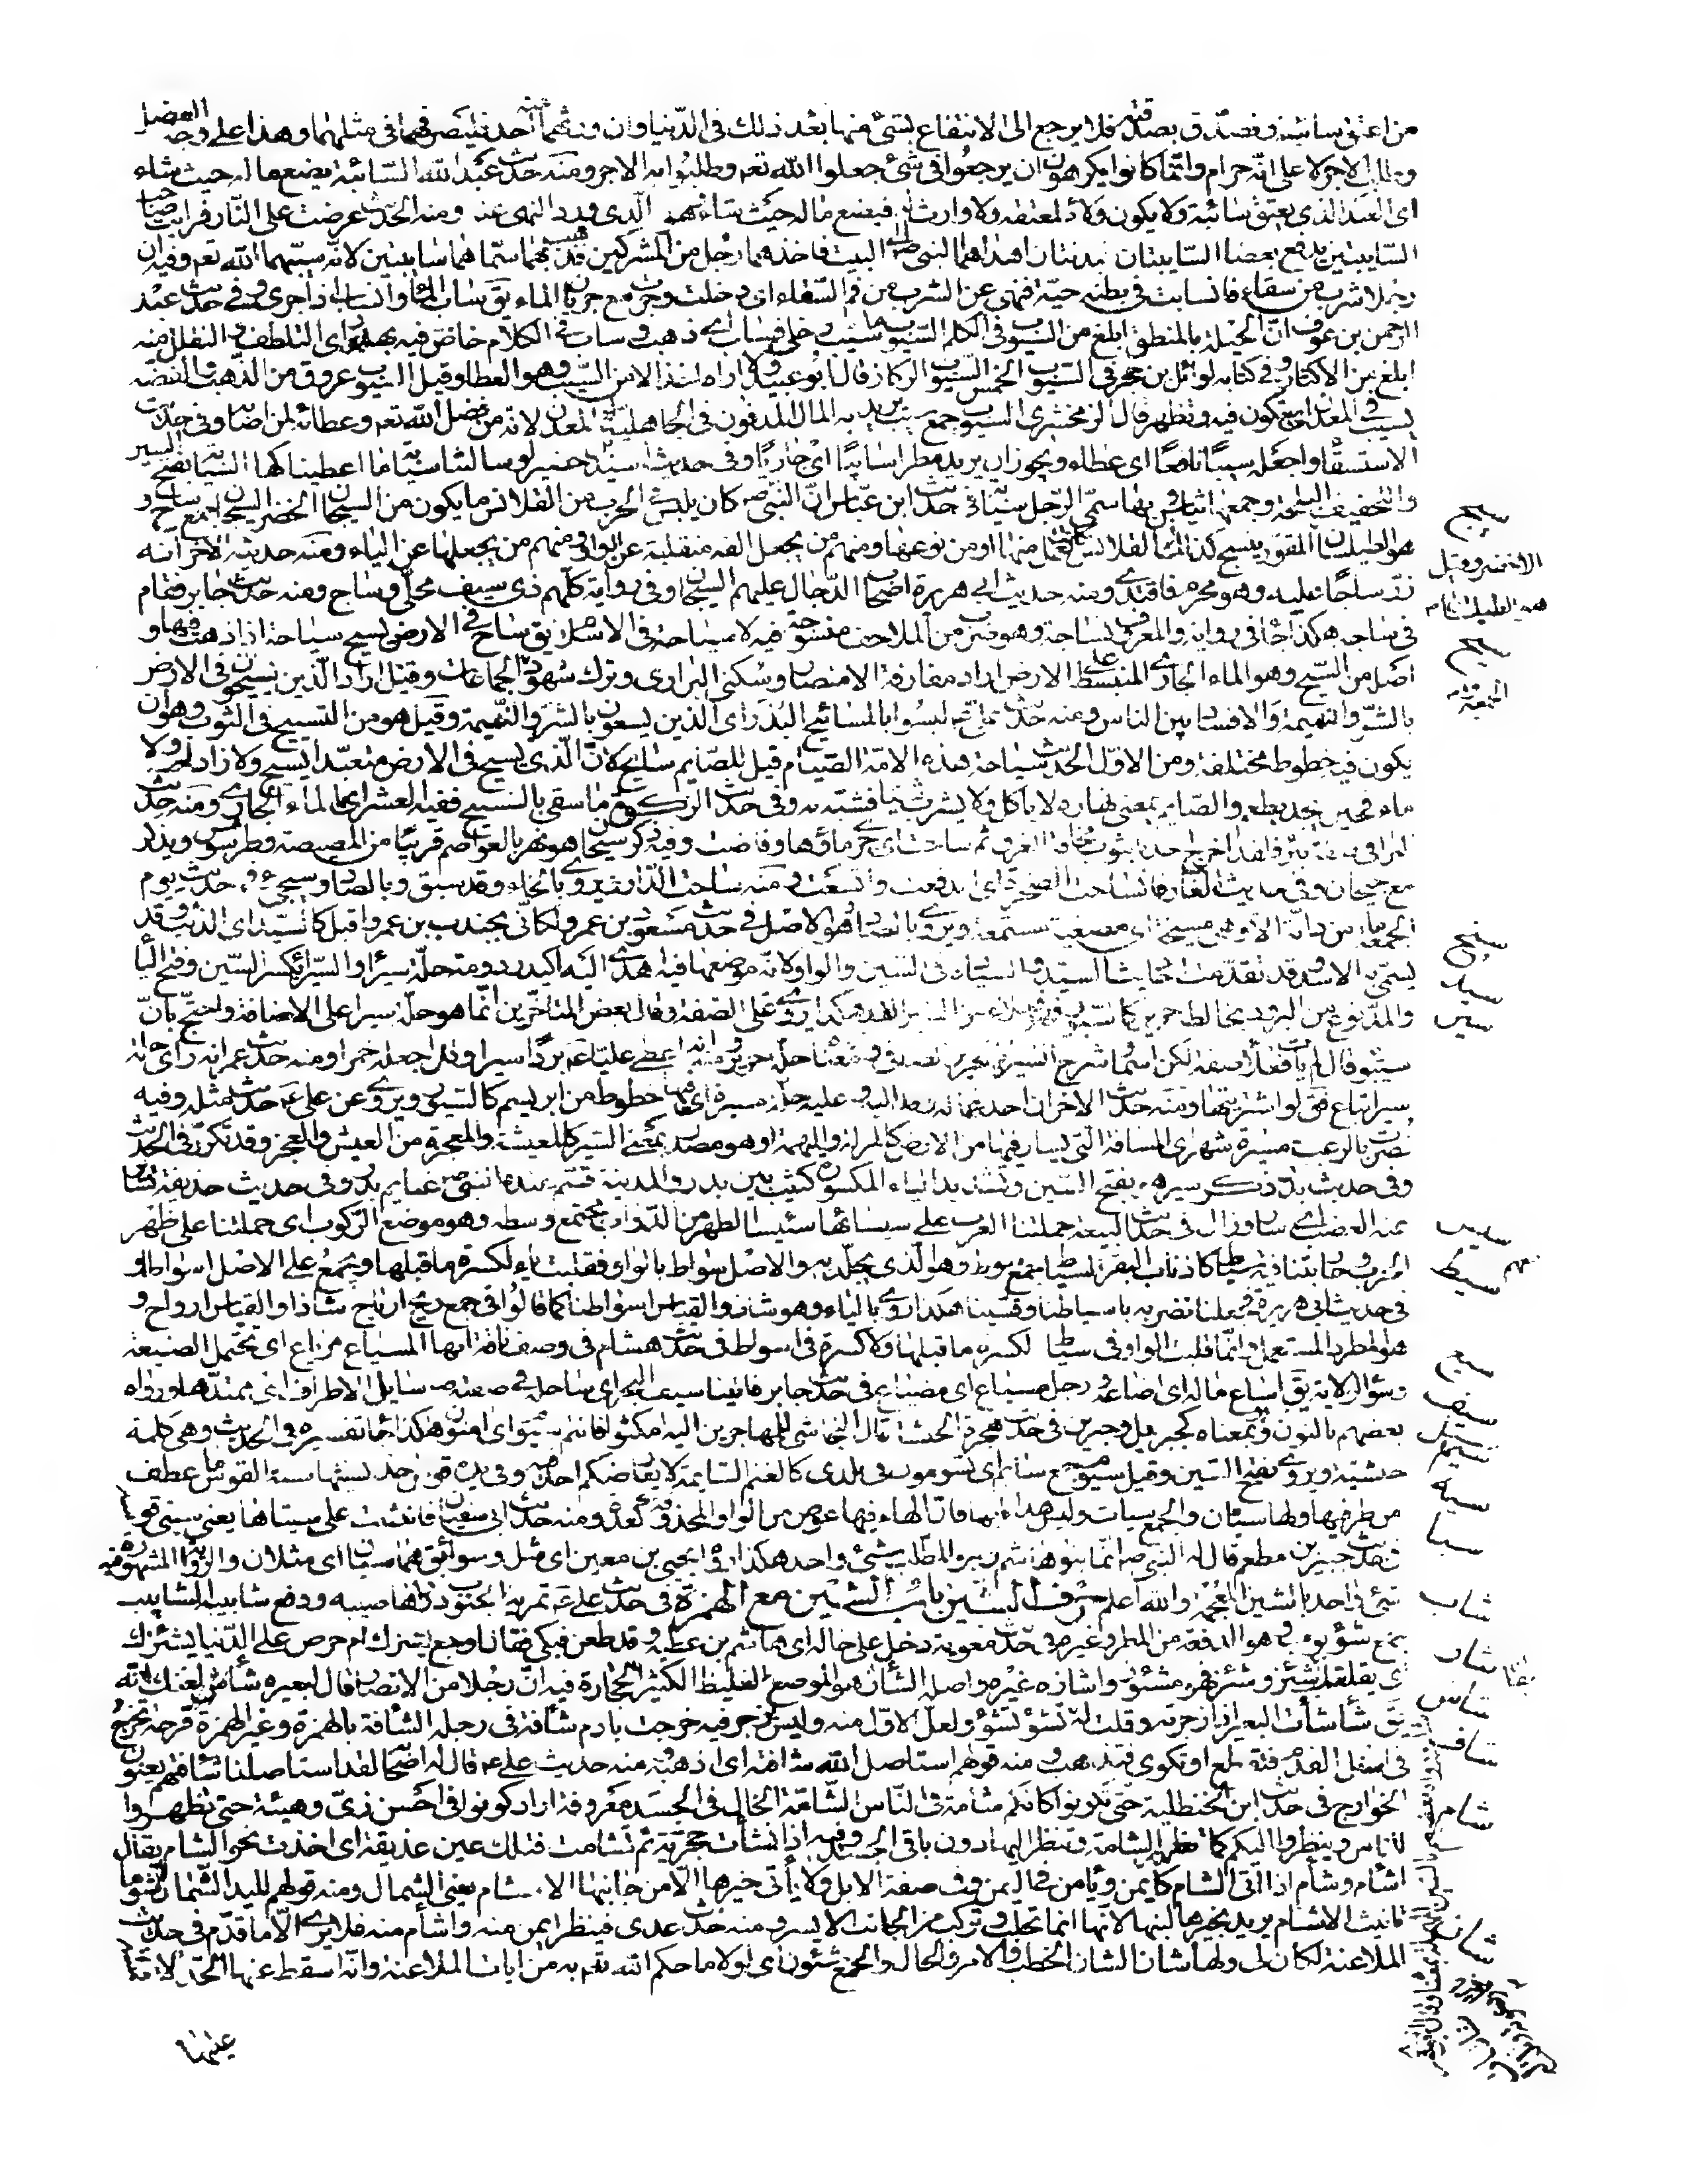 من اعتق سائبته وتصدق بصدقته فلا يرجع الى الانتفاع بشئ منها بعد ذلك فى الدنيا وان ورثهما عنه احد فليصرفهما فى مثلهما وهذا على وجه الفضل
وطلب الاجر لا على انه حرام وانما كانوا يكرهون ان يرجعوا فى شئ جعلوا الله تعم وطلبوا به الاجر ومنه حديث عبد الله السائبة يضع ماله حيث شاء
اى العبد الذى يعتق سائبة ولا يكون ولاؤه لمعتقه ولا وارث له فيضع ماله حيث شاء وهو الذى ورد النهى عنه ومنه الحديث عرضت على النار فرايت صاحب
السايبتين يدفع بعصا السايبتان بدنتان اهداهما النبى ص الى البيت فاخذهما رجل من المشركين فذهب بهما سماهما سايبتين لانه سيبهما الله تعم وفيه ان
رجلا شرب من سقاء فانسابت فى بطنه حية فنهى عن الشرب من فم السقاء اى دخلت وجرت مع جريان الماء يق ساب الماء وانساب اذا جرى وفى حديث عبد
الرحمن بن عوف ان الحيلة بالمنطق ابلغ من السيوب فى الكلم السيوب ما سيب وخلى فساب اى ذهب وساب فى الكلام خاض فيه بهذر اى التلطف والتقلل منه
ابلغ من الاكثار وفى كتابه لوائل بن حجر وفى السيوب الخمس السيوب الركاز قال ابو عبيد ولا اراه اخذ الا من السيب وهو العطا وقيل السيوب عروق من الذهب والفضة
تسيب فى المعدن اى تتكون فيه وتظهر قال الزمخشرى السيوب جمع سيب يريد به المال المدفون فى الجاهلية او المعدن لانه من فضل الله تعم وعطائه لمن اصابه وفى حديث
الاستسقا واجعله سيبا نافعا اى عطاء ويجوز ان يريد مطرا سائبا اى جاريا وفى حديث اسيد بن حضير لو سالتنا سيابة ما اعطيناكها السيابة بفتح السين
والتخفيف البلحة وجمعها سياب وبها سمى الرجل سيابة فى حديث ابن عباس ان النبى ص كان يلبس فى الحرب من القلانس ما يكون من السيجان الخضر السيجان جمع ساج و
هو الطيلسان المقور ينسج كذلك كان القلانس تعمل منها او من نوعها ومنهم من يجعل الفه منقلبة عن الواو ومنهم من يجعلها عن الياء ومنه حديثه الاخر انه
زر ساجا عليه وهو محرم فافتدى ومنه حديث ابى هريرة اصحاب الدجال عليهم السيجان وفى رواية كلهم ذى سيف محلى وساج ومنه حديث جابر فقام
فى ساجه هكذا جا فى رواية والمعروف نساجة وهو ضرب من الملاحف منسوجة فيه لا سياحة فى الاسلام يق ساح فى الارض يسيح سياحة اذا ذهب فيها و
اصله من السيح وهو الماء الجارى المنبسط على الارض اراد مفارقة الامصار وسكنى البرارى وترك شهود الجمعة والجماعات وقيل اراد الذين يسيحون فى الارض
بالشر والنميمة والافساد بين الناس ومنه حديث على ع ليسوا بالمسائيح البذر اى الذين يسعون بالشر والنميمة وقيل هو من التسييح فى الثوب وهو ان
يكون فيه خطوط مختلفة ومن الاول الحديث سياحة هذه الامة الصيام قيل للصايم سايح لان الذى يسيح فى الارض متعبدا يسيح ولا زاد له ولا
ماء فحين يجد يطعم والصايم يمضى نهاره لا ياكل ولا يشرب شيئا فشبه به وفى حديث الزكوة ما سقى بالسيح ففيه العشر اى بالماء الجارى ومنه حديث
البراء فى صفة بئر فلقد اخرج احدنا بثوب مخافة الغرق ثم ساحت اى جرى ماؤها وفاضت وفيه ذكر سيحان هو نهر بالعواصم قريبا من المصيصة وطرسوس ويذكر
مع جيحان وفى حديث الغار فانساحت الصخرة اى اندفعت واتسعت ومنه ساحة الدار ويروى بالخاء وقد سبق وبالصاد وسيجئ فى حديث يوم
الجمعة ما من دابة الا وهى مسيخة اى مصغية مستمعة ويروى بالصاد وهو الاصل فى حديث مسعود بن عمرو لكانى بجندب بن عمرو اقبل كالسيد اى الذئب وقد
يسمى به الاسد وقد تقدمت احاديث السيد والسيادة فى السين والواو لانه موضعها فيه اهدى اليه اكيدر دومة حلة سيرا السيراء بكسر السين وفتح اليا
والمد نوع من البرود يخالطه حرير كالسيور فهو فعلاء من السير القد هكذا روى على الصفة وقال بعض المتاخرين انما هو حلة سيرا على الاضافة واحتج بان
سيبويه قال لم يات فعلاء صفة لكن اسما وشرح السيراء بالحرير الصافى ومعناه حلة حرير وفيه انه اعطى عليا ع بردا سيرا وقال اجعله خمرا ومنه حديث عمر انه راى حلة
سيرا تباع فق لو اشتريتها ومنه حديثه الاخر ان احد عماله وفد اليه وعليه حلة مسيرة اى فيها خطوط من ابريسم كالسيور ويروى عن على ع حديث مثله وفيه
نصرت بالرعب مسيرة شهر اى المسافة التى يسار فيها من الارض كالمنزلة والمتهمة او هو مصدر بمعنى السير كالمعيشة والمعجزة من العيش والعجز وقد تكرر فى الحديث
وفى حديث بدر ذكر سير هو بفتح السين وتشديد الياء المكسورة كثيب بين بدر والمدينة قسم عنده النبى ص غنايم بدر وفى حديث حذيفة تساير
عنه الغضب اى سار وزال فى حديث البيعة حملتنا العرب على سيسائها سيساء الظهر من الدواب مجتمع وسطه وهو موضع الركوب اى حملتنا على ظهر
الحرب وحاربتنا فيه سياط كاذناب البقر السياط جمع سوط وهو الذى يجلد به والاصل سواط بالواو فقلبت ياء لكسرة ما قبلها ويجمع على الاصل اسواطا و
فى حديث ابى هريرة فجعلنا نضربه باسياطنا وقسينا هكذا روى بالياء وهو شاذ والقياس اسواطنا كما قالوا فى جمع ريح ارياح شاذا والقياس ارواح و
هو المطرد المستعمل وانما قلبت الواو فى سياط لكسرة ما قبلها ولا كسرة فى اسواط فى حديث هشام فى وصف ناقة انها المسياع مرباع اى تحتمل الضيعة
وسؤ الولاية يق اساع ماله اى اضاعه ورجل مسياع اى مضياع فى حديث جابر فاتينا سيف البحر اى ساحله فى صفته ص سايل الاطراف اى ممتدها ورواه
بعضهم بالنون وبمعناه كجبريل وجبرين فى حديث هجرة الحبشة قال النجاشى للمهاجرين اليه امكثوا فانتم سيوم اى امنون هكذا جا تفسيره فى الحديث وهى كلمة
حبشية ويروى بفتح السين وقيل سيوم جمع سايم اى تسومون فى بلدى كالغنم السايمة لا يعارضكم احد وفى يده قوس اخذ بسيتها سية القوس ما عطف
من طرفيها ولها سيتان والجمع سيات وليس هذا بابها فان الهاء فيها عوض من الواو المحذوفة كعدة ومنه حديث ابى سفين فانثنت على سيتاها يعنى سيتى قوسه
فى حديث جبير بن مطعم قال له النبى ص انما بنو هاشم وبنو المطلب سئ واحد هكذا رواه يحيى بن معين اى مثل وسواء يق هما سيان اى مثلان والرواية المشهورة فيه
شئ واحد بالشين المعجمة والله اعلم حرف الشين باب الشين مع الهمزة فى حديث على ع تمريه الجنوب درر اهاضيبه ودفع شابيبه الشابيب
جمع شؤبوب وهو الدفعة من المطر وغيره فى حديث معوية دخل على خاله ابى هاشم بن عتبة وقد طعن فبكى فقال اوجع يشئزك ام حرص على الدنيا يشئزك
اى يقلقك يق شئز وشئز فهو مشؤز واشازه غيره واصله الشأز هو الموضع الغليظ الكثير الحجارة فيه ان رجلا من الانصار قال لبعيره شأ لعنك الله
يق شأشأت البعير اذا زجرته وقلت له تشؤ تشؤ ولعل الاول منه وليس بزجر فيه خرجت بادم شأفة فى رجله الشأفة بالهمزة وغير الهمزة قرحة تخرج
فى اسفل القدم فتقطع او تكوى فتذهب ومنه قولهم استاصل الله شأفته اى اذهبه ومنه حديث على ع قال له اصحابه لقد استاصلنا شأفتهم يعنون
الخوارج فى حديث ابن الحنظلية حتى تكونوا كانكم شامة فى الناس الشامة الخال فى الجسد معروفة اراد كونوا فى احسن زى وهيئة حتى تظهروا
للناس وينظروا اليكم كما تظهر الشامة وتنظر اليها دون باقى الجسد وفيه اذا نشأت بحرية ثم تشامت فتلك عين غديقة اى اخذت نحو الشام يقال
اشأم وشاءم اذا اتى الشام كايمن ويامن فى اليمن وفى صفة الابل ولا ياتى خيرها الا من جانبها الاشام يعنى الشمال ومنه قولهم لليد الشمال الشؤما
تانيث الاشام يريد بخيرها لبنها لانها انما تحلب وتركب من الجانب الايسر ومنه حديث عدى فينظر ايمن منه واشأم منه فلا يرى الا ما قدم فى حديث
الملاعنة لكان لى ولها شان الشان الخطب والامر والحال والجمع شئون اى لولا ما حكم الله تعم به من ايات الملاعنة وانه اسقط عنها الحد لاقمته
عليها
سيج
سيح
سيخ
سيد
سير
سيس
سيط
سيع
سيف
سيل
سيم
سيه
سيا
شاب
شاز
شاف
شام
شان